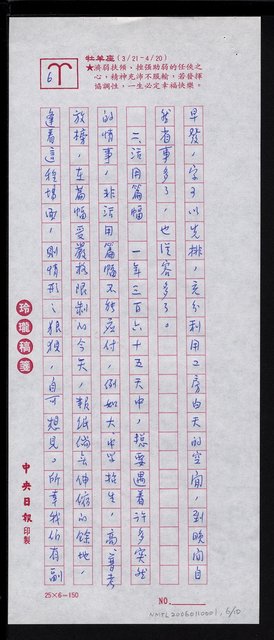 牡羊座(3/21-4/20)
★濟弱扶傾、挫強助弱的任俠之
心,精神充沛不服輸,若發揮
協調性,一生必定幸福快樂。
6
早發,字可以先排,充分利用工房白天的空間,到晚間自
然省事多了,也從容多了。
二、活用篇幅 一年三百六十五天中,總要遇着許多突然
的情事,非活用篇幅不能应付,例如大中學招生,高普考
放榜,在篇幅受嚴格限制的今天,報紙備無伸縮的餘地,
逢着這種場面,則情形之狼狽,自可想見。所幸我们有副
玲瓏稿箋
中央日報印製
25×6-150
NO.
NMTL20050110001, 6/10